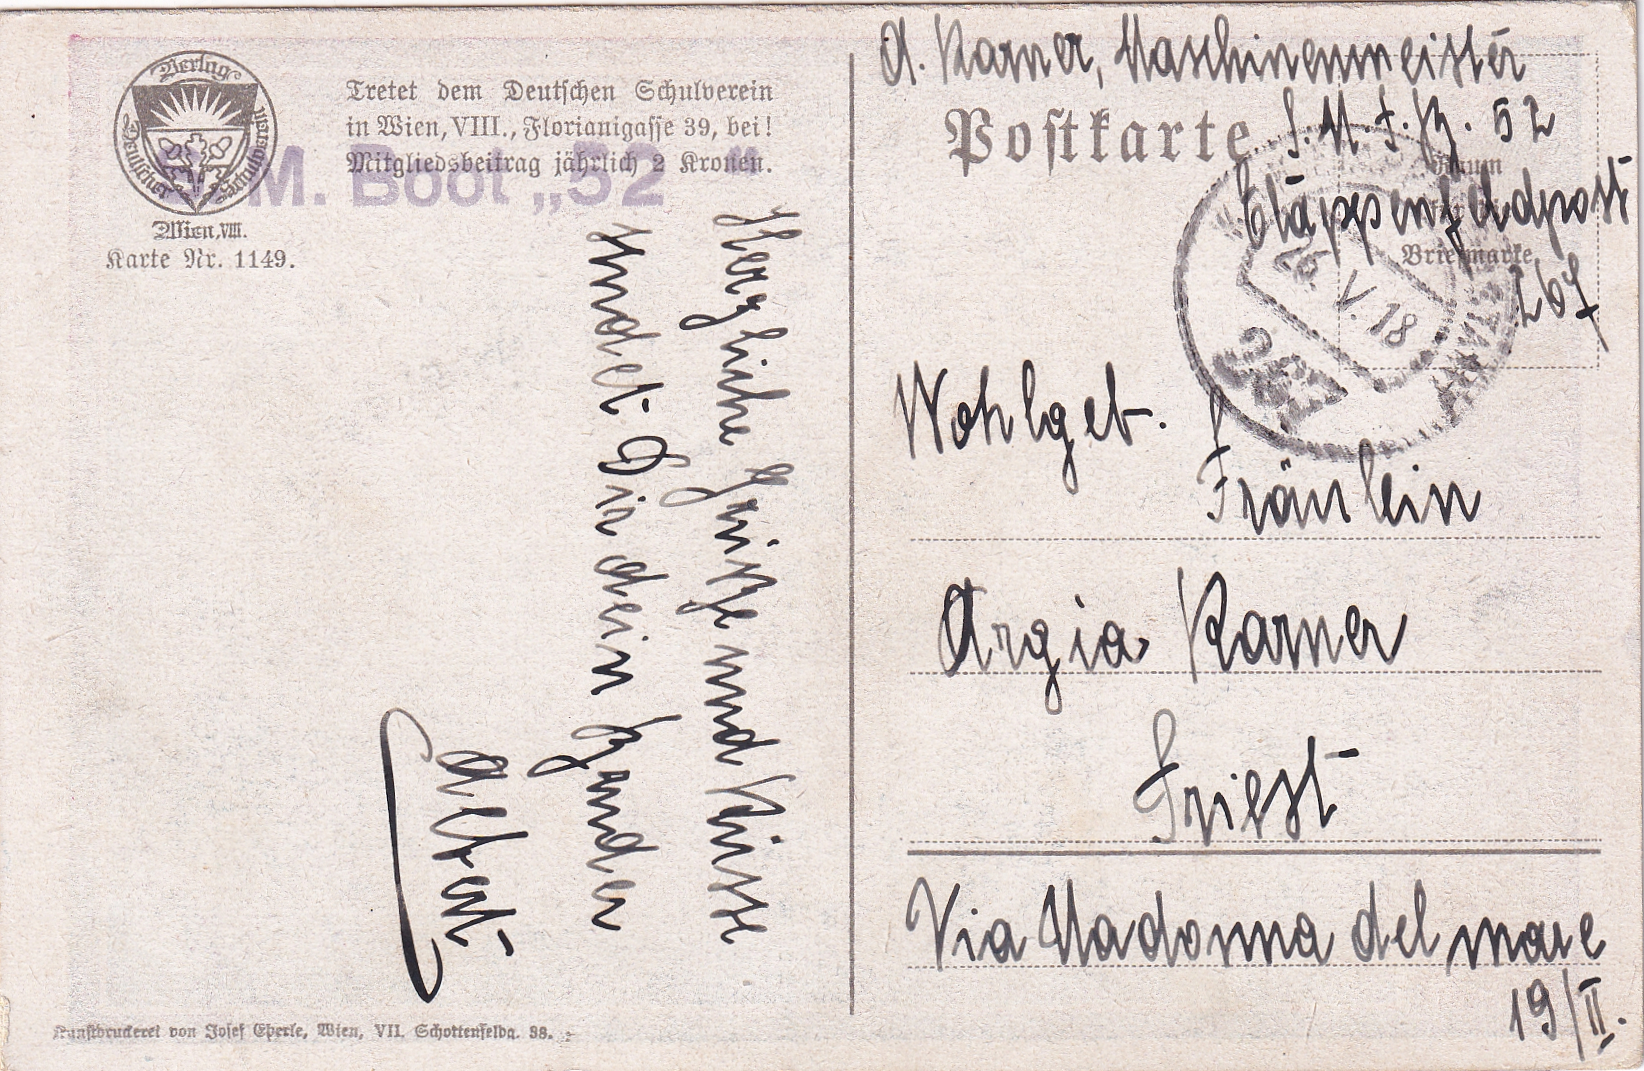 Verlag
Deutscher Schulverein
Wien, VIII.
Karte Nr. 1149.
Tretet dem Deutschen Schulverein
in Wien, VIII., Florianigasse 39, bei!
Mitgliedsbeitrag jährlich 2 Kronen.
M. Boot „52"
Herzliche Grüße und Küsse
sendet Dir dein Bruder
Albert
Kunstdruckerei von Josef Eberle, Wien, VII. Schottenfeldg. 38.
A. Karner, Maschinenmeister
Postkarte
52
Etappenfeldpost
267
Raum
Briefmarke
26. V. 18
Wohlgeb.
Fräulein
Argia Karner
Triest
Via Madonna del mare
19/II.